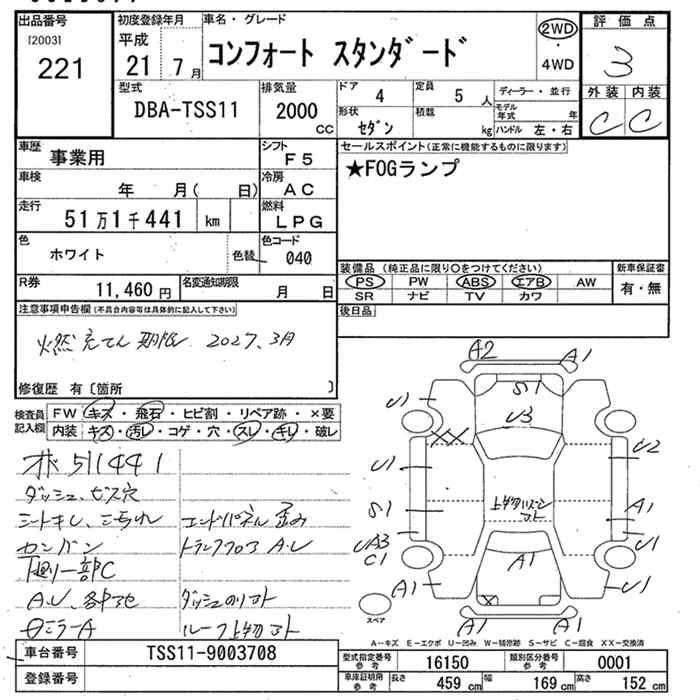 出品番号
[2003]
221
初度登録年月
平成
21 7月
車名・グレード
コンフォート スタンダード
2WD
・
4WD
評価点
3
外装 内装
C C
型式
DBA-TSS11
排気量
2000
cc
ドア 4
定員 5 人
形状 セダン
積載 kg
ディーラー・並行
モデル年式 年
ハンドル 左・右
車歴 事業用
シフト F5
車検 年 月( 日)
冷房 AC
走行 51万1千441 km
燃料 LPG
色 ホワイト
色替
色コード 040
R券 11,460円
名変通知期限 月 日
セールスポイント(正常に機能するものに限ります)
★FOGランプ
装備品 (純正品に限り○をつけてください)
PS PW ABS エアB AW
SR ナビ TV カワ
新車保証書
有・無
後日品
注意事項申告欄(不具合内容等は具体的に記入して下さい)
燃えてん 期限 2027.3月
修復歴 有〔箇所 〕
検査員記入欄
FW キズ・飛石・ヒビ割・リペア跡・×要
内装 キズ・汚レ・コゲ・穴・スレ・キレ・破レ
オド511441
ダッシュ、ビス穴
シートキレ、こすれ
カンバン
下廻り一部C
A.U、各キズ
エンドパネル 歪み
トランクフロア A.U
ダッシュのりアト
ルーフ上物アト
A2
A1
S1
U1
U3
XX
U1
U2
S1
上物ハズシアト
A1
UA3
C1
U1
A1
A1
U1
X
A1
A1
スペア
A-キズ E-エクボ U-凹み W-補修跡 S-サビ C-腐食 XX-交換済
車台番号 TSS11-9003708
登録番号
型式指定番号 参考 16150
類別区分番号 参考 0001
車庫証明用 参考 長さ 459 cm 幅 169 cm 高さ 152 cm